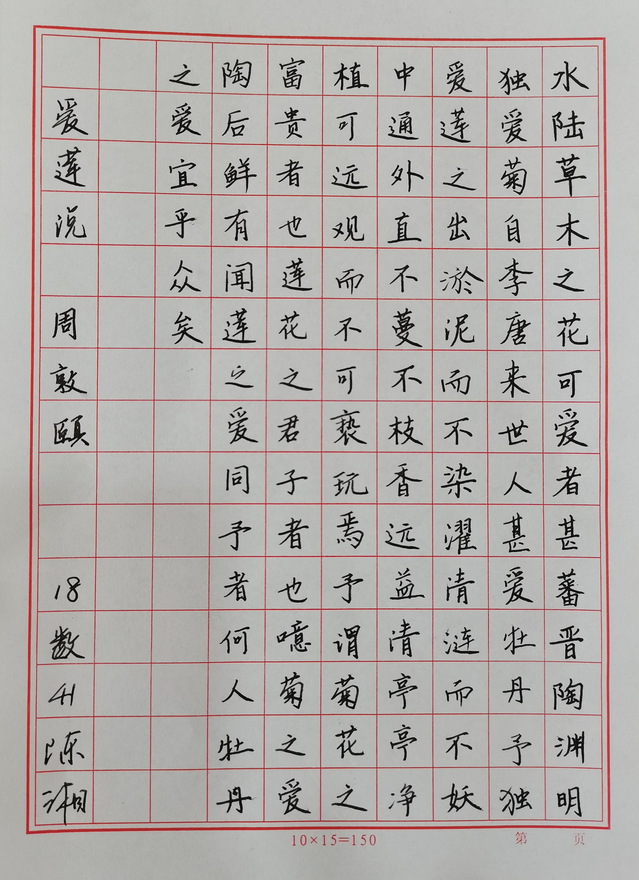 水陆草木之花可爱者甚蕃晋陶渊明
独爱菊自李唐来世人甚爱牡丹予独
爱莲之出淤泥而不染濯清涟而不妖
中通外直不蔓不枝香远益清亭亭净
植可远观而不可亵玩焉予谓菊花之
富贵者也莲花之君子者也噫菊之爱
陶后鲜有闻莲之爱同予者何人牡丹
之爱宜乎众矣
爱莲说 周敦颐 18数41陈湘
10×15=150 第 页